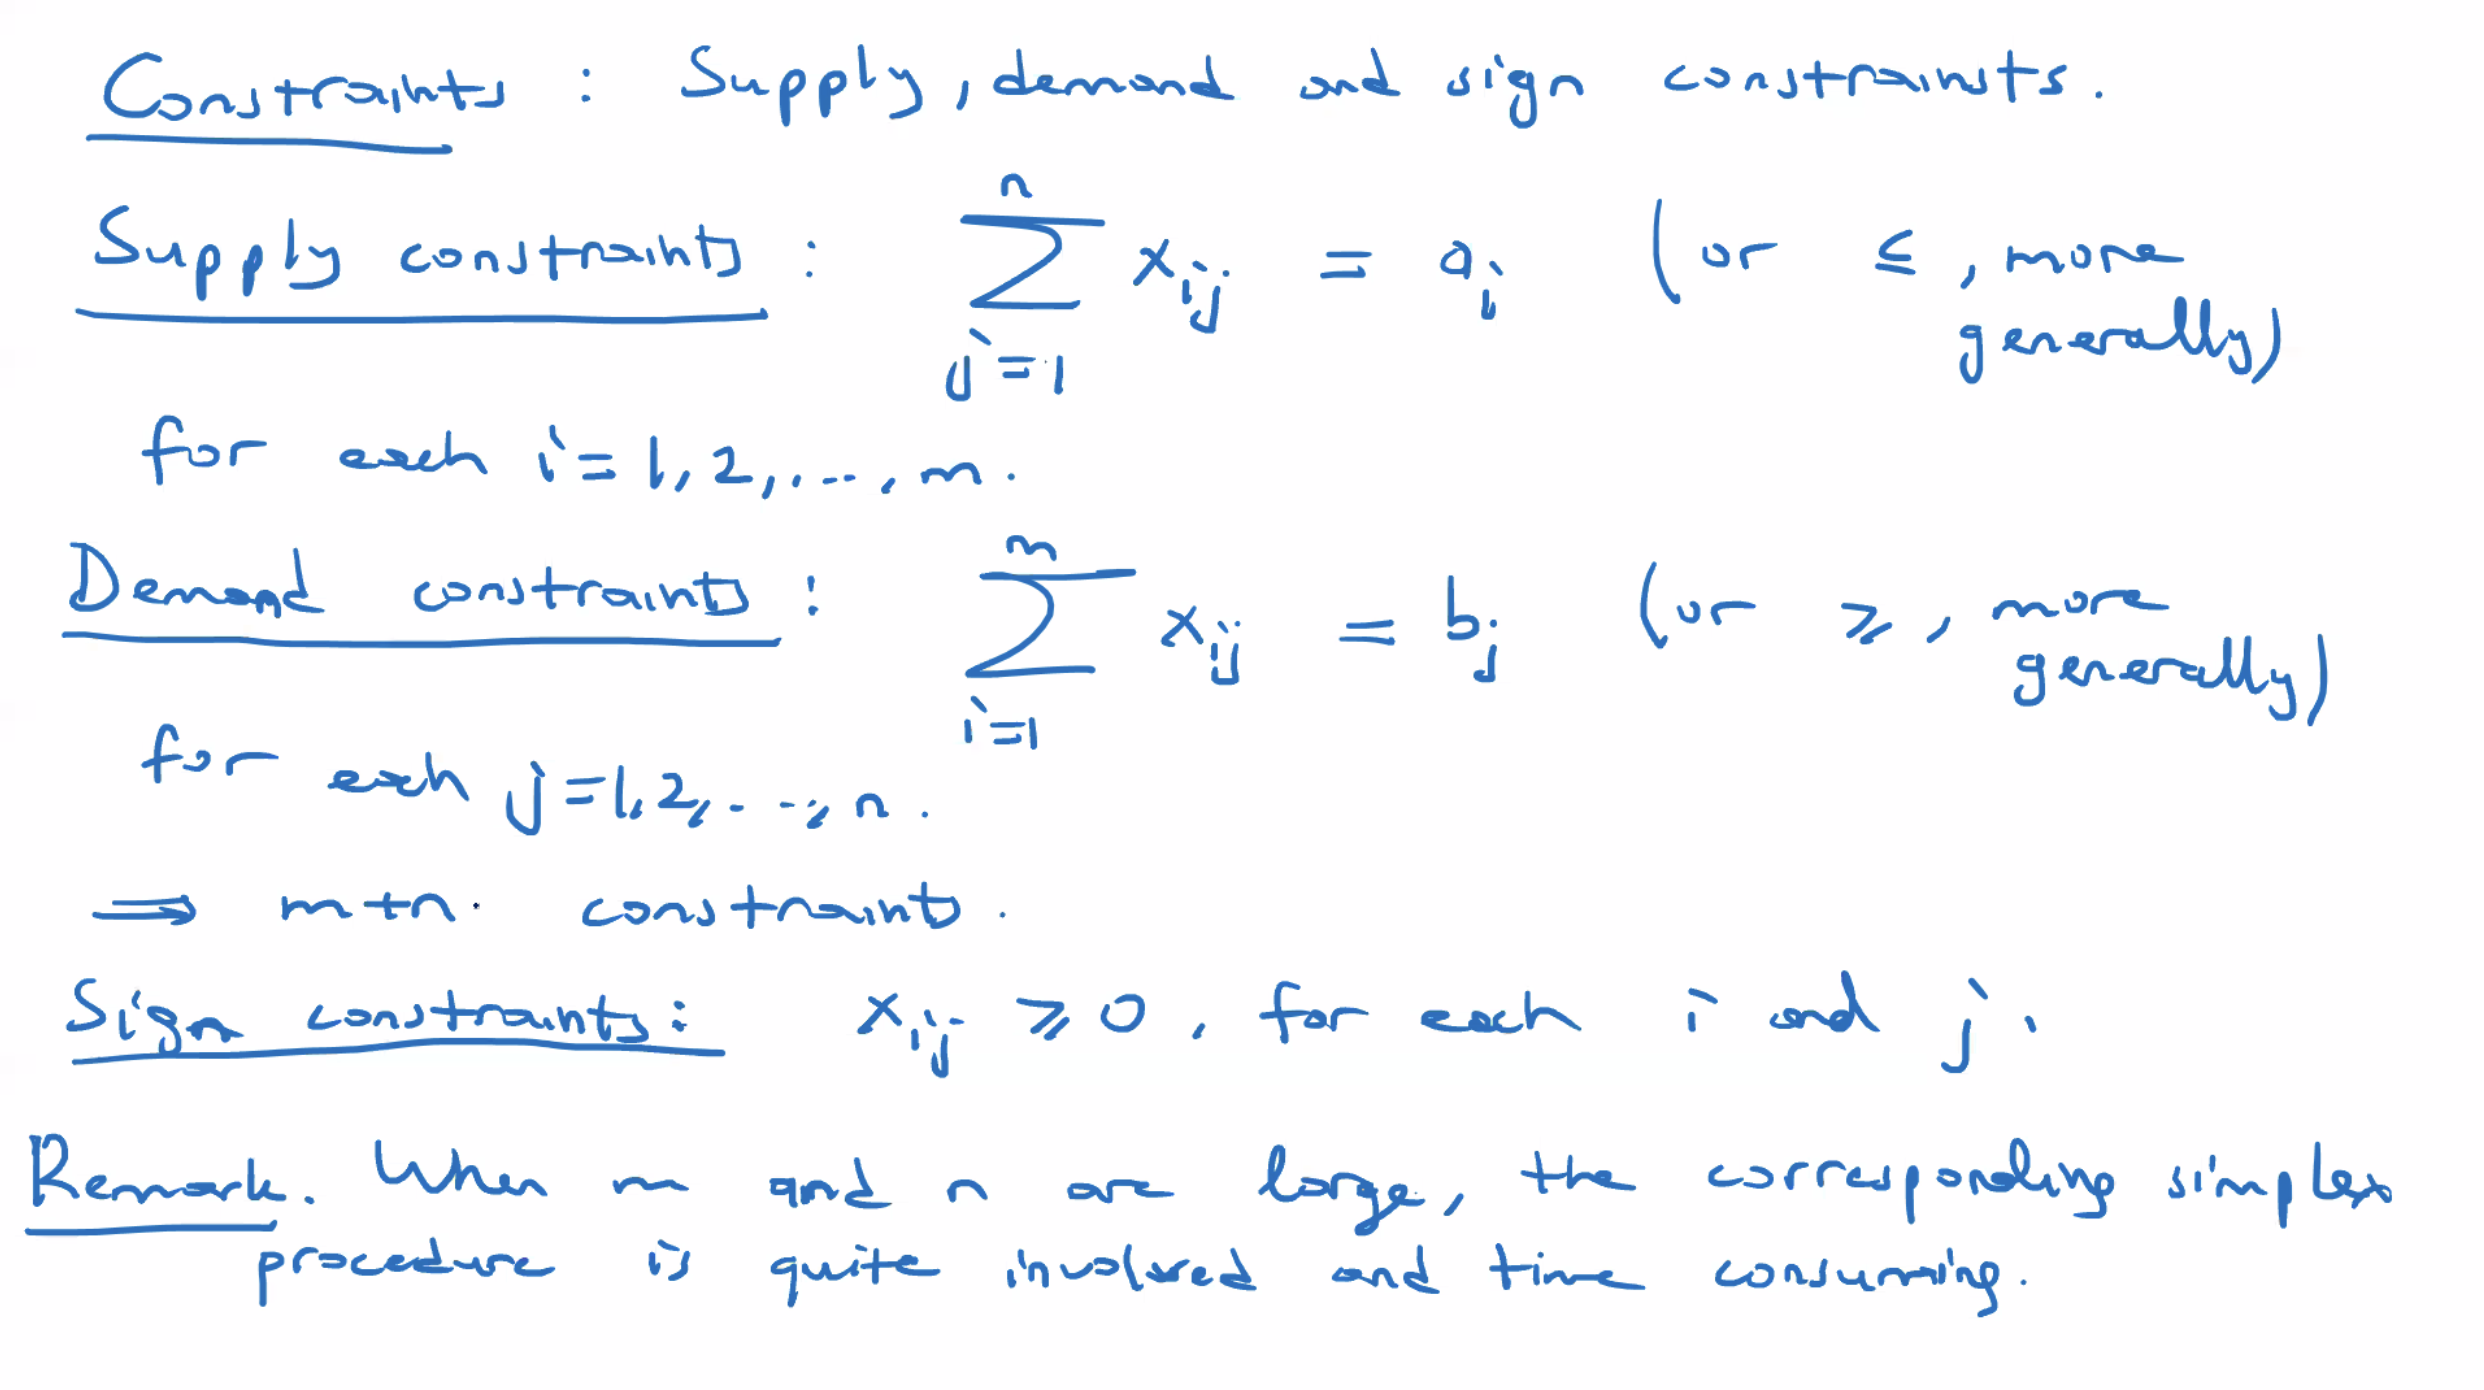 Constraints : Supply, demand and sign constrainsts.
Supply constraints : \sum_{j=1}^{n} x_{ij} = a_i (or ≤, more generally)
for each i=1,2,...,m.
Demand constraints : \sum_{i=1}^{m} x_{ij} = b_j (or ≥, more generally)
for each j=1,2,...,n.
⟹ m+n constraints.
Sign constraints: x_{ij} ≥ 0, for each i and j.
Remark. When m and n are large, the corresponding simplex
procedure is quite involved and time consuming.